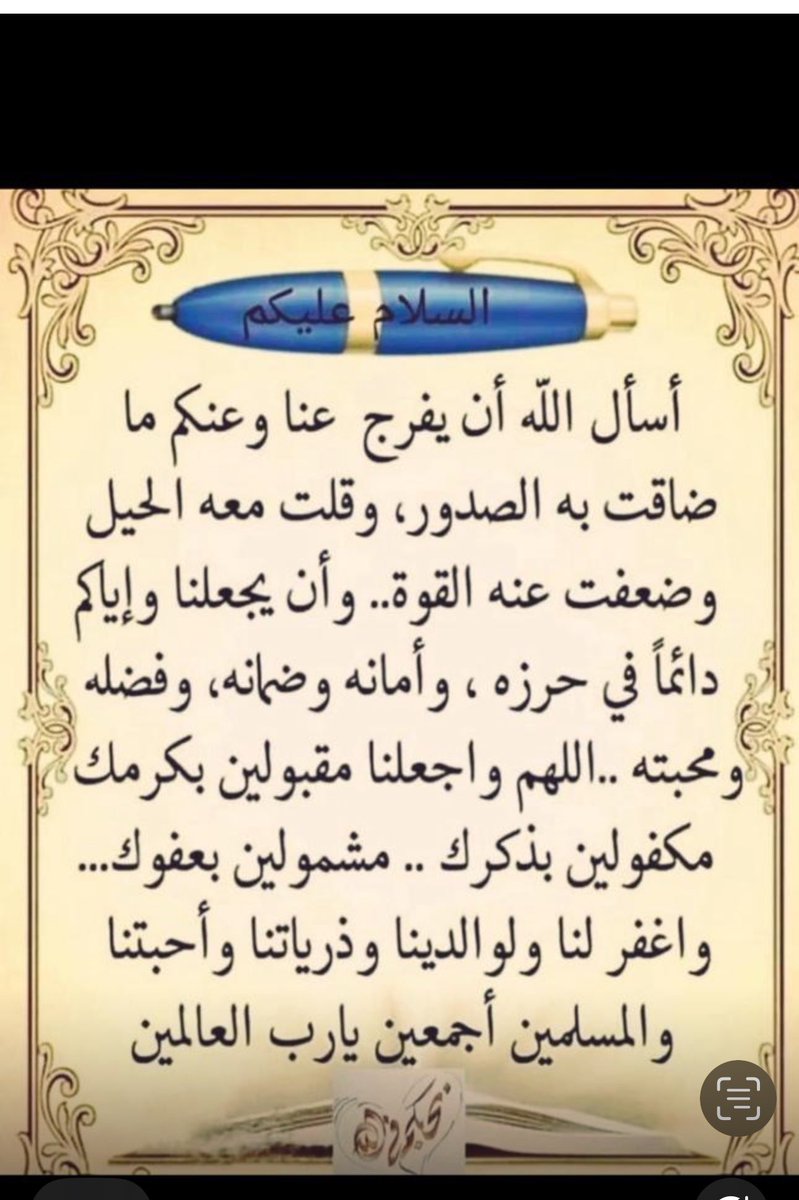 السلام عليكم
أسأل اللّه أن يفرج عنا وعنكم ما
ضاقت به الصدور، وقلت معه الحيل
وضعفت عنه القوة.. وأن يجعلنا وإياكم
دائماً في حرزه ، وأمانه وضمانه، وفضله
ومحبته ..اللهم واجعلنا مقبولين بكرمك
مكفولين بذكرك .. مشمولين بعفوك...
واغفر لنا ولوالدينا وذرياتنا وأحبتنا
والمسلمين أجمعين يارب العالمين